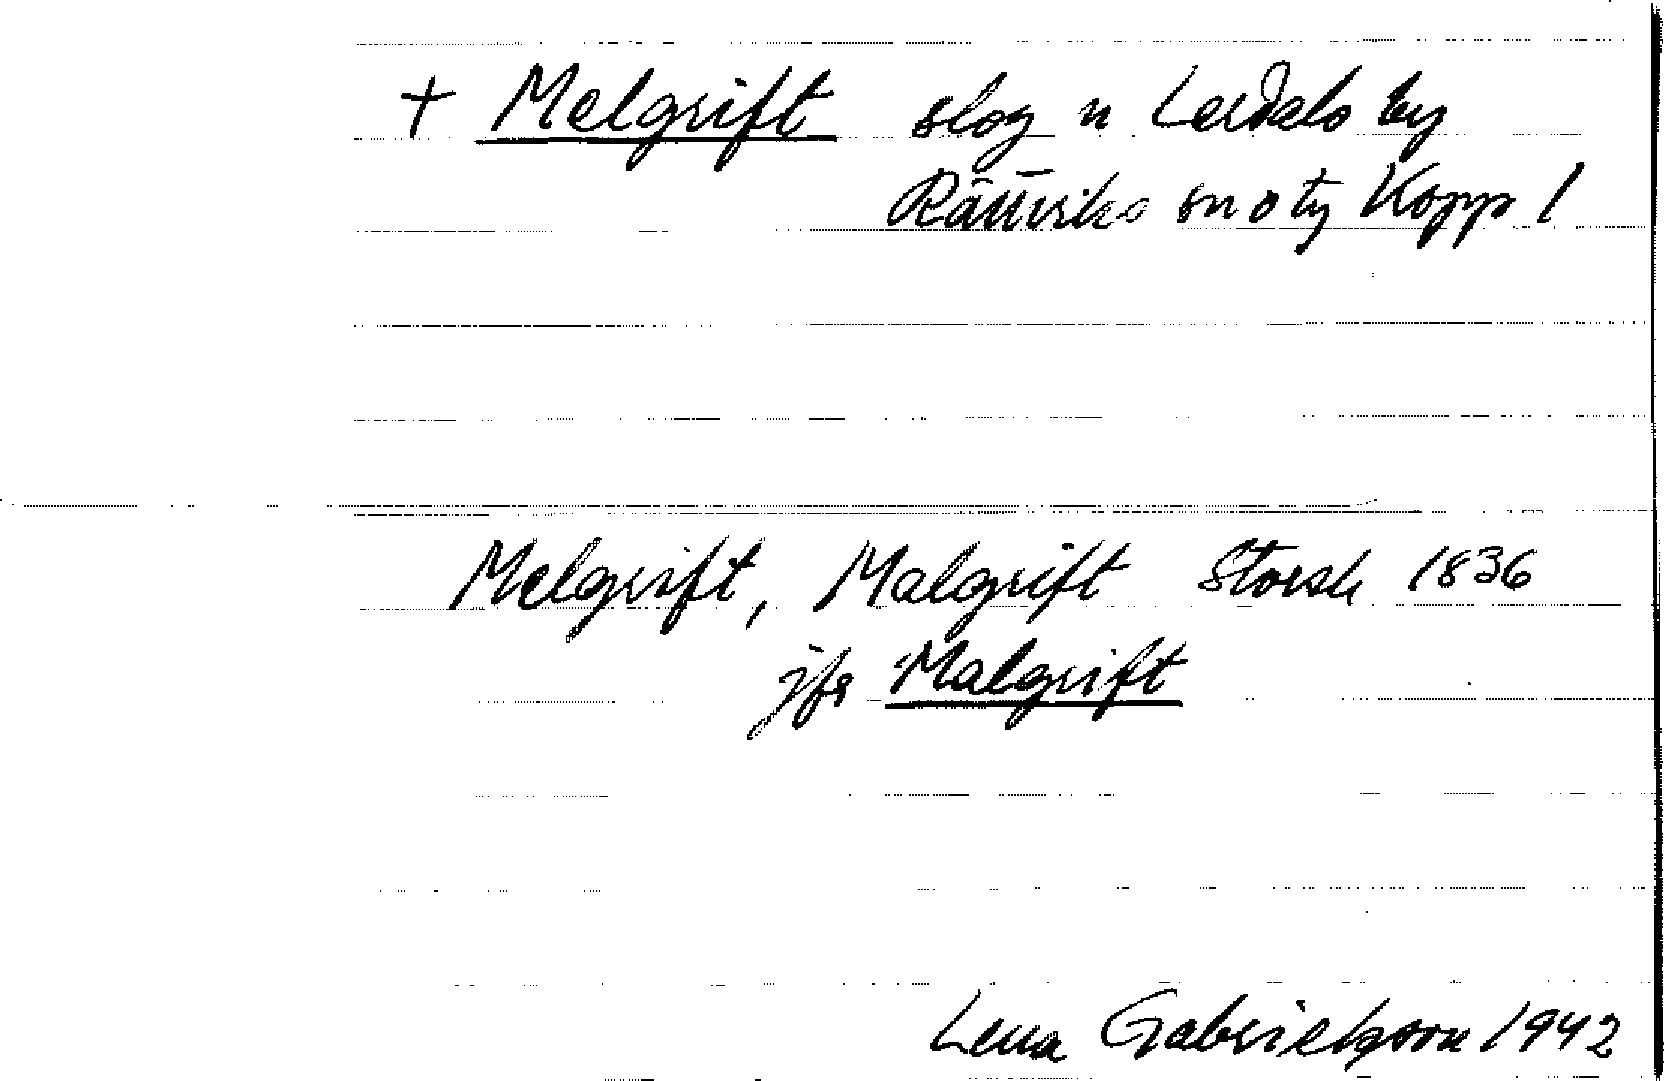 + Melgrift slog u Lerdals by
Rättviks sn o tg Kopp l
Melgrift, Malgrift Storsk 1836
jfr Malgrift
Lena Gabrielsson 1942